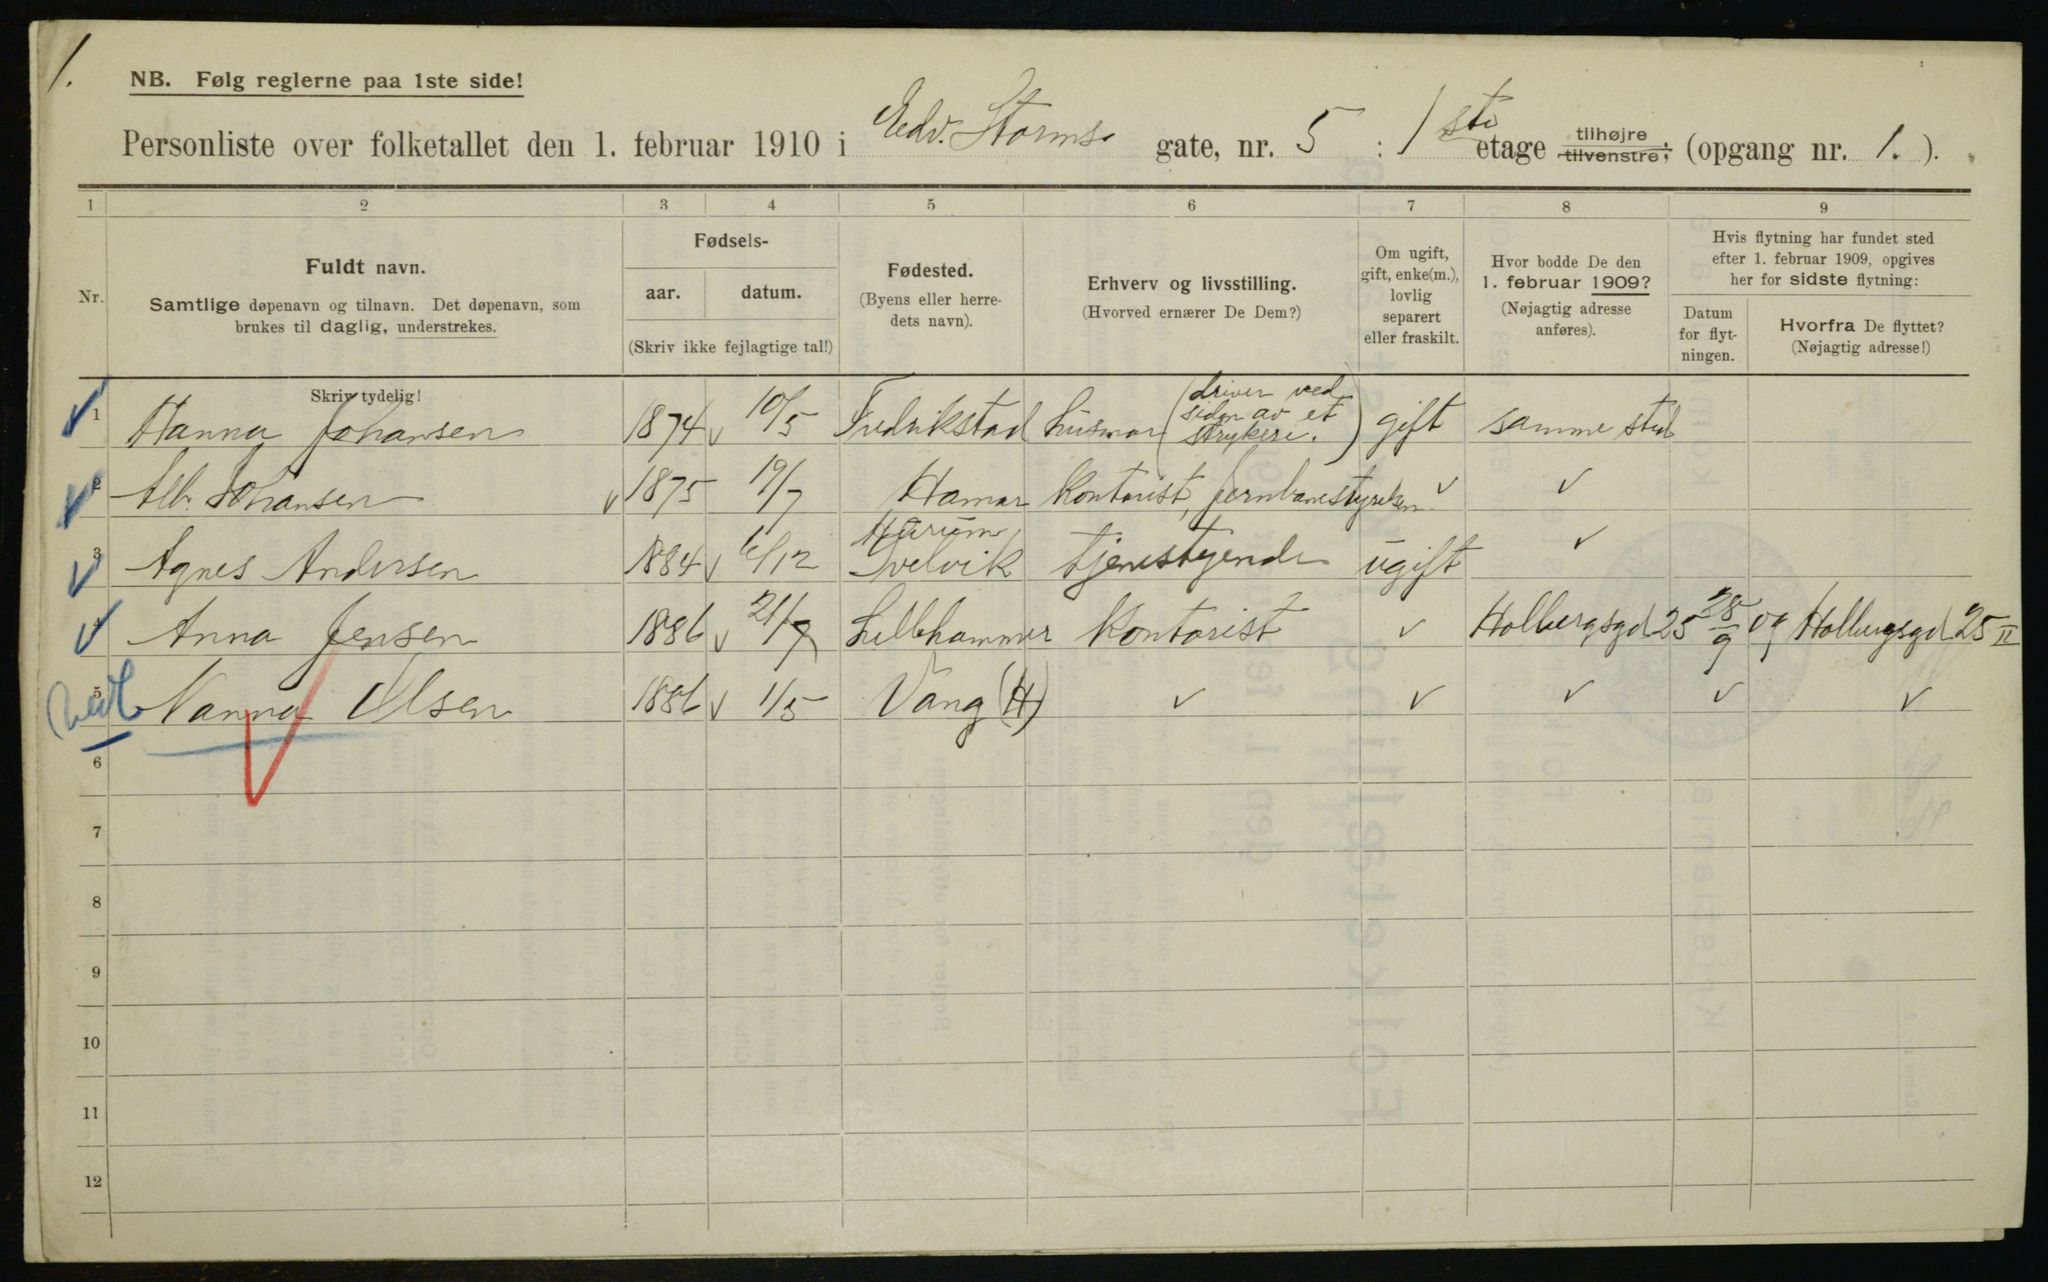 1.
NB. Følg reglerne paa 1ste side!
Personliste over folketallet den 1. februar 1910 i Edv. Storms gate, nr. 5 : 1 ste etage tilhøjre, tilvenstre, (opgang nr. 1. ).
1 2 3 4 5 6 7 8 9
Nr.
Fuldt navn.
Samtlige døpenavn og tilnavn. Det døpenavn, som
brukes til daglig, understrekes.
Skriv tydelig!
Fødsels-
aar. datum.
(Skriv ikke fejlagtige tal!)
Fødested.
(Byens eller herre-
dets navn).
Erhverv og livsstilling.
(Hvorved ernærer De Dem?)
Om ugift,
gift, enke(m.),
lovlig
separert
eller fraskilt.
Hvor bodde De den
1. februar 1909?
(Nøjagtig adresse
anføres).
Hvis flytning har fundet sted
efter 1. februar 1909, opgives
her for sidste flytning:
Datum
for flyt-
ningen.
Hvorfra De flyttet?
(Nøjagtig adresse!)
1 Hanna Johansen 1874 10/5 Fredrikstad husmor (driver ved siden av et strykeri.) gift samme sted
2 Alb. Johansen 1875 19/7 Hamar Kontorist, Jernbanestyrelsen ✓ ✓
3 Agnes Andersen 1884 6/12 Hurum Svelvik tjenestyende ugift ✓
4 Anna Jensen 1886 21/7 Lillehammer Kontorist ✓ Holbergsgd 25 28/9 09 Holbergsgd 25 II
5 Nanna Olsen 1886 1/5 Vang (H) ✓ ✓ ✓ ✓ ✓
6
7
8
9
10
11
12